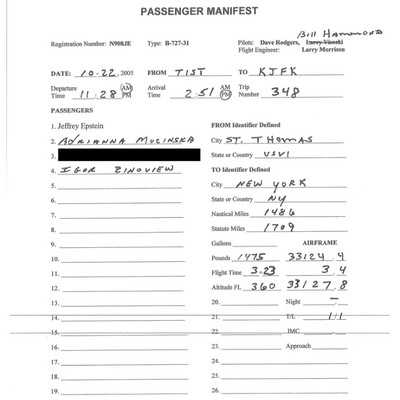 PASSENGER MANIFEST
Bill Hammond
Registration Number: N908JE Type: B-727-31 Pilots: Dave Rodgers, Larry Visoski
Flight Engineer: Larry Morrison
DATE: 10-22, 2005 FROM TIST TO KJFK
Departure Time 11:28 AM PM Arrival Time 2:51 AM PM Trip Number 348
PASSENGERS
1. Jeffrey Epstein
2. ADRIANNA MUCINSKA
3.
4. IGOR ZINOVIEW
5.
6.
7.
8.
9.
10.
11.
12.
13.
14.
15.
16.
17.
18.
19.
FROM Identifier Defined
City ST. THOMAS
State or Country USVI
TO Identifier Defined
City NEW YORK
State or Country NY
Nautical Miles 1486
Statute Miles 1709
Gallons AIRFRAME
Pounds 1475 33124.4
Flight Time 3.23 3.4
Altitude FL 360 33127.8
20. Night -
21. T/L 1/1
22. IMC
23. Approach
24.
25.
26.